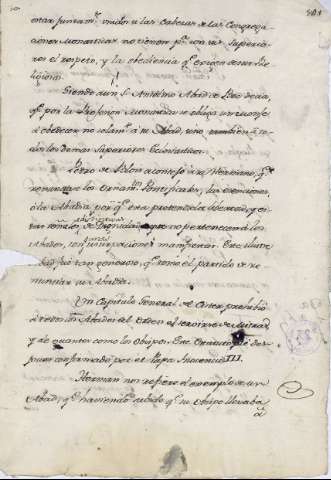 estar juntam.te unidos a las cabezas de las Congrega
ciones Monasticas no tienen p.a con sus Superio
res el respeto, y la obediencia q.e exige de su Re
ligion.
Siendo aun S. Anselmo Abad de Bec decia
q.e por la Profesion Monastica se obliga un monje
a obedecer no solam.te a su Abad, sino tambien a to
dos los demas Superiores Eclesiasticos.
Pedro de Blois aconsejó a su Hermano, q.e
renunciase los Ornam.tos Pontificales, las exenciones,
o la Abadia por q.e era pretender la libertad, y es
tar
de Dignidades que no pertenecen a los
Abades, con usurpaciones manifiestas. Este ilustre
Abad fué tan generoso, q.e tomó el partido de re
nunciar su Abadia.
Un Capitulo General de Cister prohibió
a todos los Abades del Orden el servirse de Mitras,
y de guantes como los Obispos. Este Decreto fué des
pues confirmado por el Papa Inocencio III.
Herman nos refiere el exemplo de un
Abad, q.e haviendo sabido q.e su Obispo llevaba
a